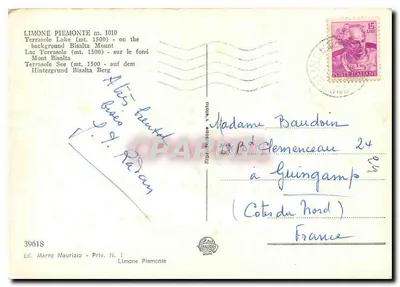 LIMONE PIEMONTE m. 1010
Terrasole Lake (mt. 1500) - on the
background Bisalta Mount
Lac Terrasole (mt. 1500) - sur le fond
Mont Bisalta
Terrasole See (mt. 1500 - auf dem
Hintergrund Bisalta Berg
15
LIRE
POSTE ITALIANE
A très bientôt
Bises
Madame Baudoin
Bd Clemenceau 24
à Guingamp
(Côtes du Nord)
France
39618
Ed. Marro Maurizio - Priv. N. 1
Limone Piemonte